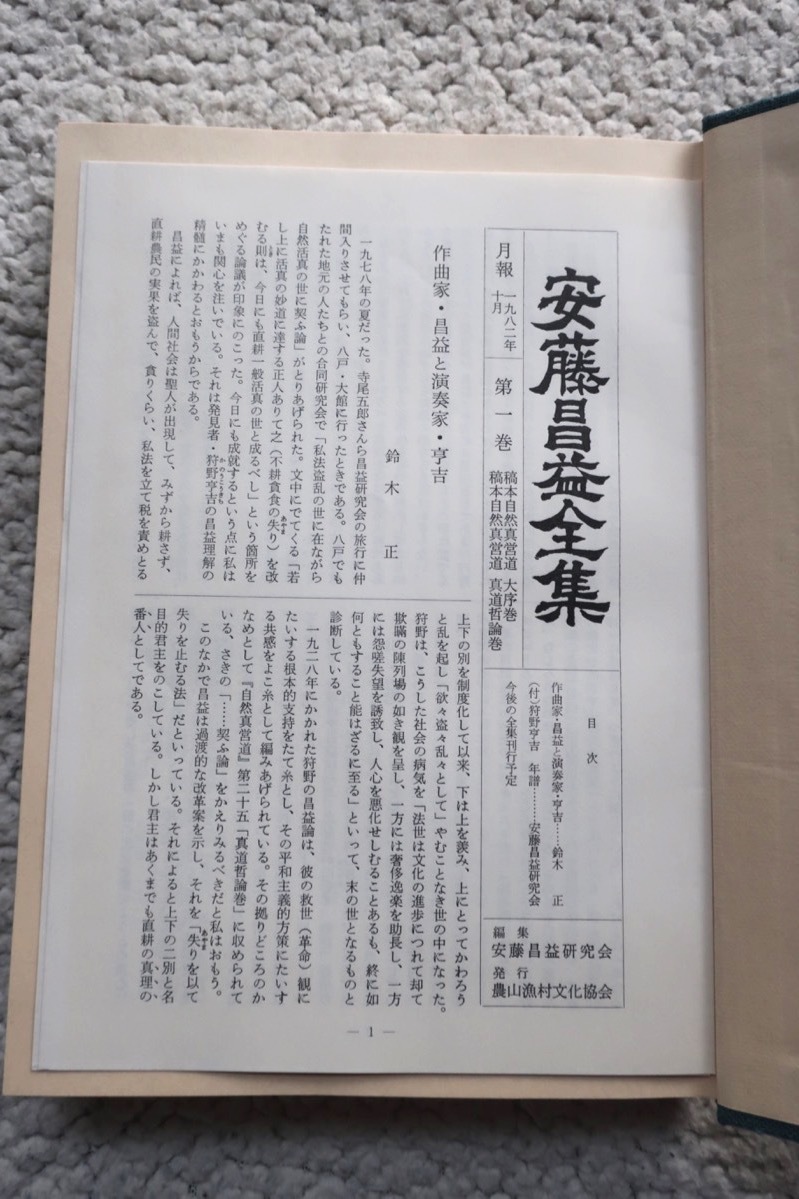 安藤昌益全集
月報
一九八二年
十月
第一巻
稿本自然真営道 大序巻
稿本自然真営道 真道哲論巻
目次
作曲家・昌益と演奏家・亨吉……鈴木 正
(付)狩野亨吉 年譜………安藤昌益研究会
今後の全集刊行予定
編集
安藤昌益研究会
発行
農山漁村文化協会
作曲家・昌益と演奏家・亨吉
鈴木 正
一九七八年の夏だった。寺尾五郎さんら昌益研究会の旅行に仲
間入りさせてもらい、八戸・大館に行ったときである。八戸でも
たれた地元の人たちとの合同研究会で「私法盗乱の世に在ながら
自然活真の世に契ふ論」がとりあげられた。文中にでてくる「若
し上に活真の妙道に達する正人ありて之(不耕貪食の失り)を改
むる則は、今日にも直耕一般活真の世と成るべし」という箇所を
めぐる論議が印象にのこった。今日にも成就するという点に私は
いまも関心を注いでいる。それは発見者・狩野亨吉の昌益理解の
精髄にかかわるとおもうからである。
昌益によれば、人間社会は聖人が出現して、みずから耕さず、
直耕農民の実果を盗んで、貪りくらい、私法を立て税を責めとる
上下の別を制度化して以来、下は上を羨み、上にとってかわろう
と乱を起し「欲々盗々乱々として」やむことなき世の中になった。
狩野は、こうした社会の病気を「法世は文化の進歩につれて却て
欺瞞の陳列場の如き観を呈し、一方には奢侈逸楽を助長し、一方
には怨嗟失望を誘致し、人心を悪化せしむることあるも、終に如
何ともすること能はざるに至る」といって、末の世となるものと
診断している。
一九二八年にかかれた狩野の昌益論は、彼の救世(革命)観に
たいする根本的支持をたて糸とし、その平和主義的方策にたいす
る共感をよこ糸として編みあげられている。その拠りどころのか
なめとして『自然真営道』第二十五「真道哲論巻」に収められて
いる、さきの「……契ふ論」をかえりみるべきだと私はおもう。
このなかで昌益は過渡的な改革案を示し、それを「失りを以て
失りを止むる法」だといっている。それによると上下の二別と名
目的君主をのこしている。しかし君主はあくまでも直耕の真理の
番人としてである。
— 1 —